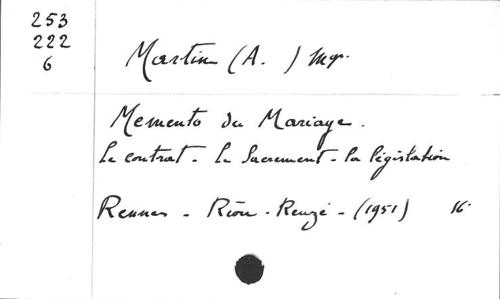 253
222
6
Martin (A. ) Mgr.
Memento du Mariage.
Le contrat - le Sacrement - la législation
Rennes - Riou-Reuzé - (1951) 16°